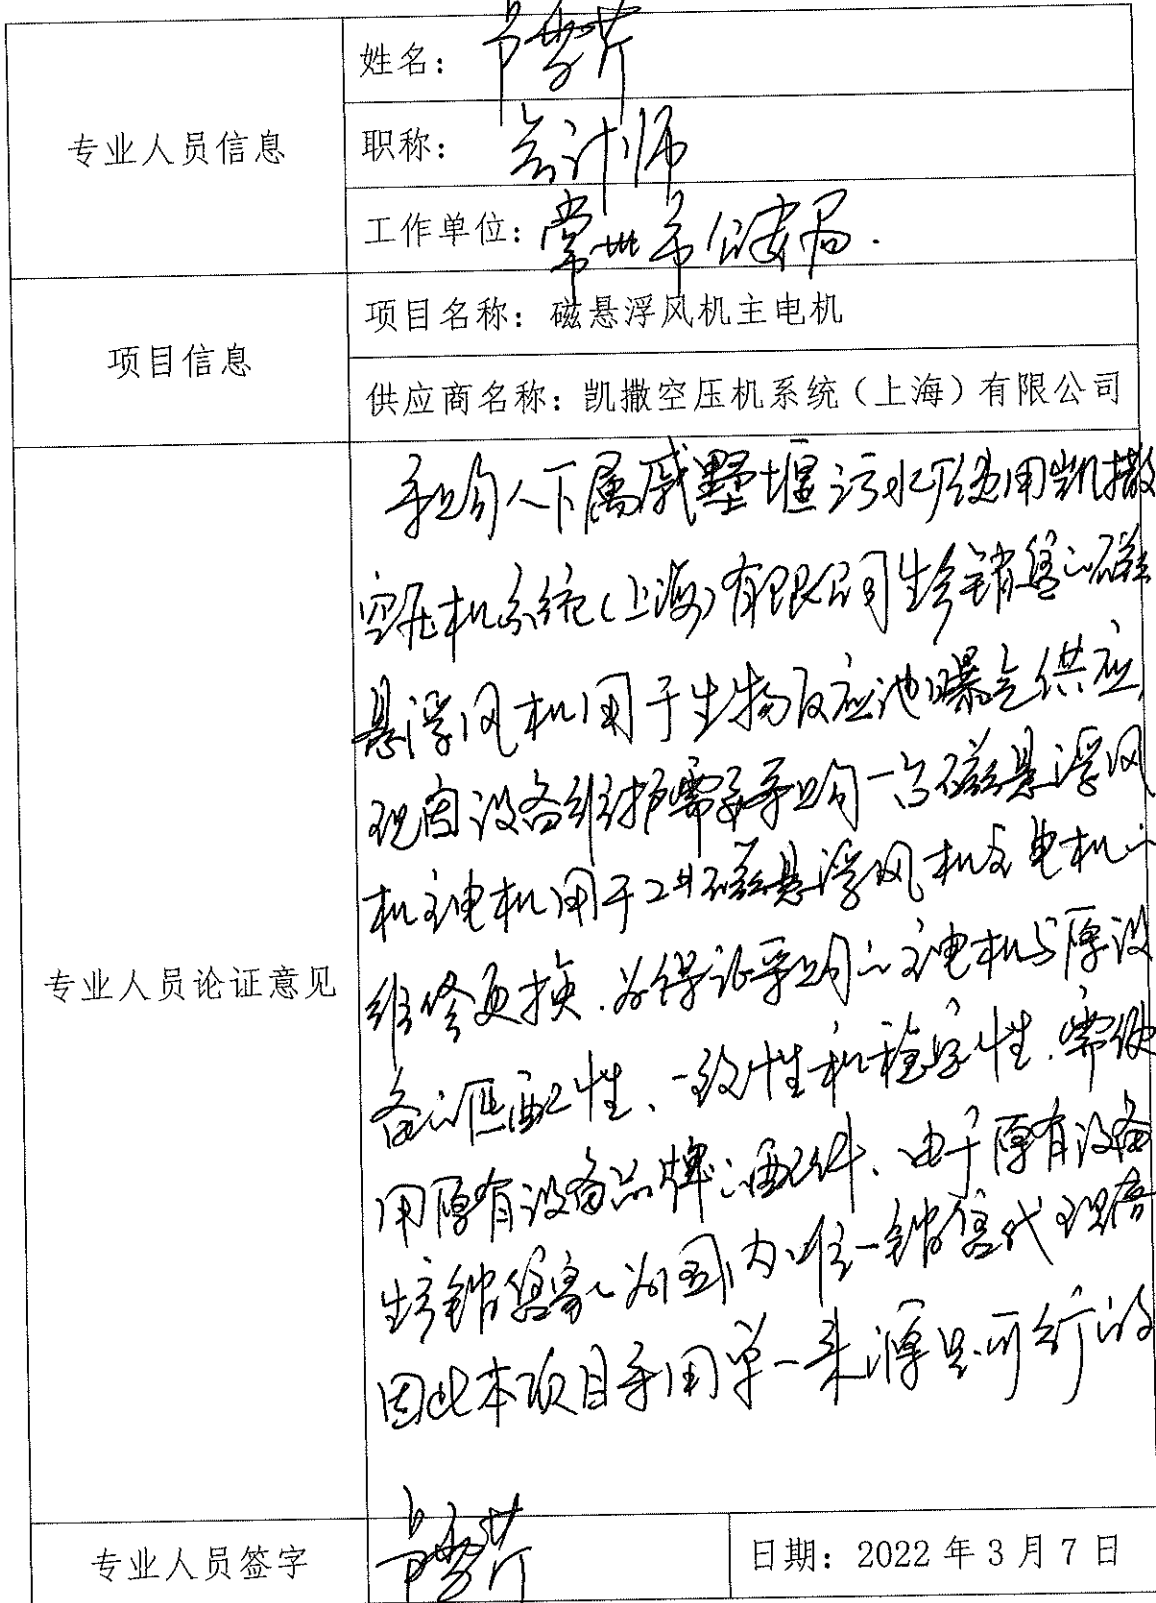 专业人员信息
姓名：
职称：会计师
工作单位：常州市公安局.
项目信息
项目名称：磁悬浮风机主电机
供应商名称：凯撒空压机系统（上海）有限公司
专业人员论证意见
采购人下属戚墅堰污水厂使用凯撒
空压机系统(上海)有限公司生产销售的磁
悬浮风机用于生物反应池曝气供应,
现因设备维护需要采购一台磁悬浮风
机主电机用于2#磁悬浮风机主电机的
维修更换.为保证采购的主电机与原设
备的匹配性、一致性和稳定性.需使
用原有设备品牌的配件、由于原有设备
生产销售家为国内唯一销售代理商
因此本项目采用单一来源是可行的
专业人员签字
日期：2022年3月7日